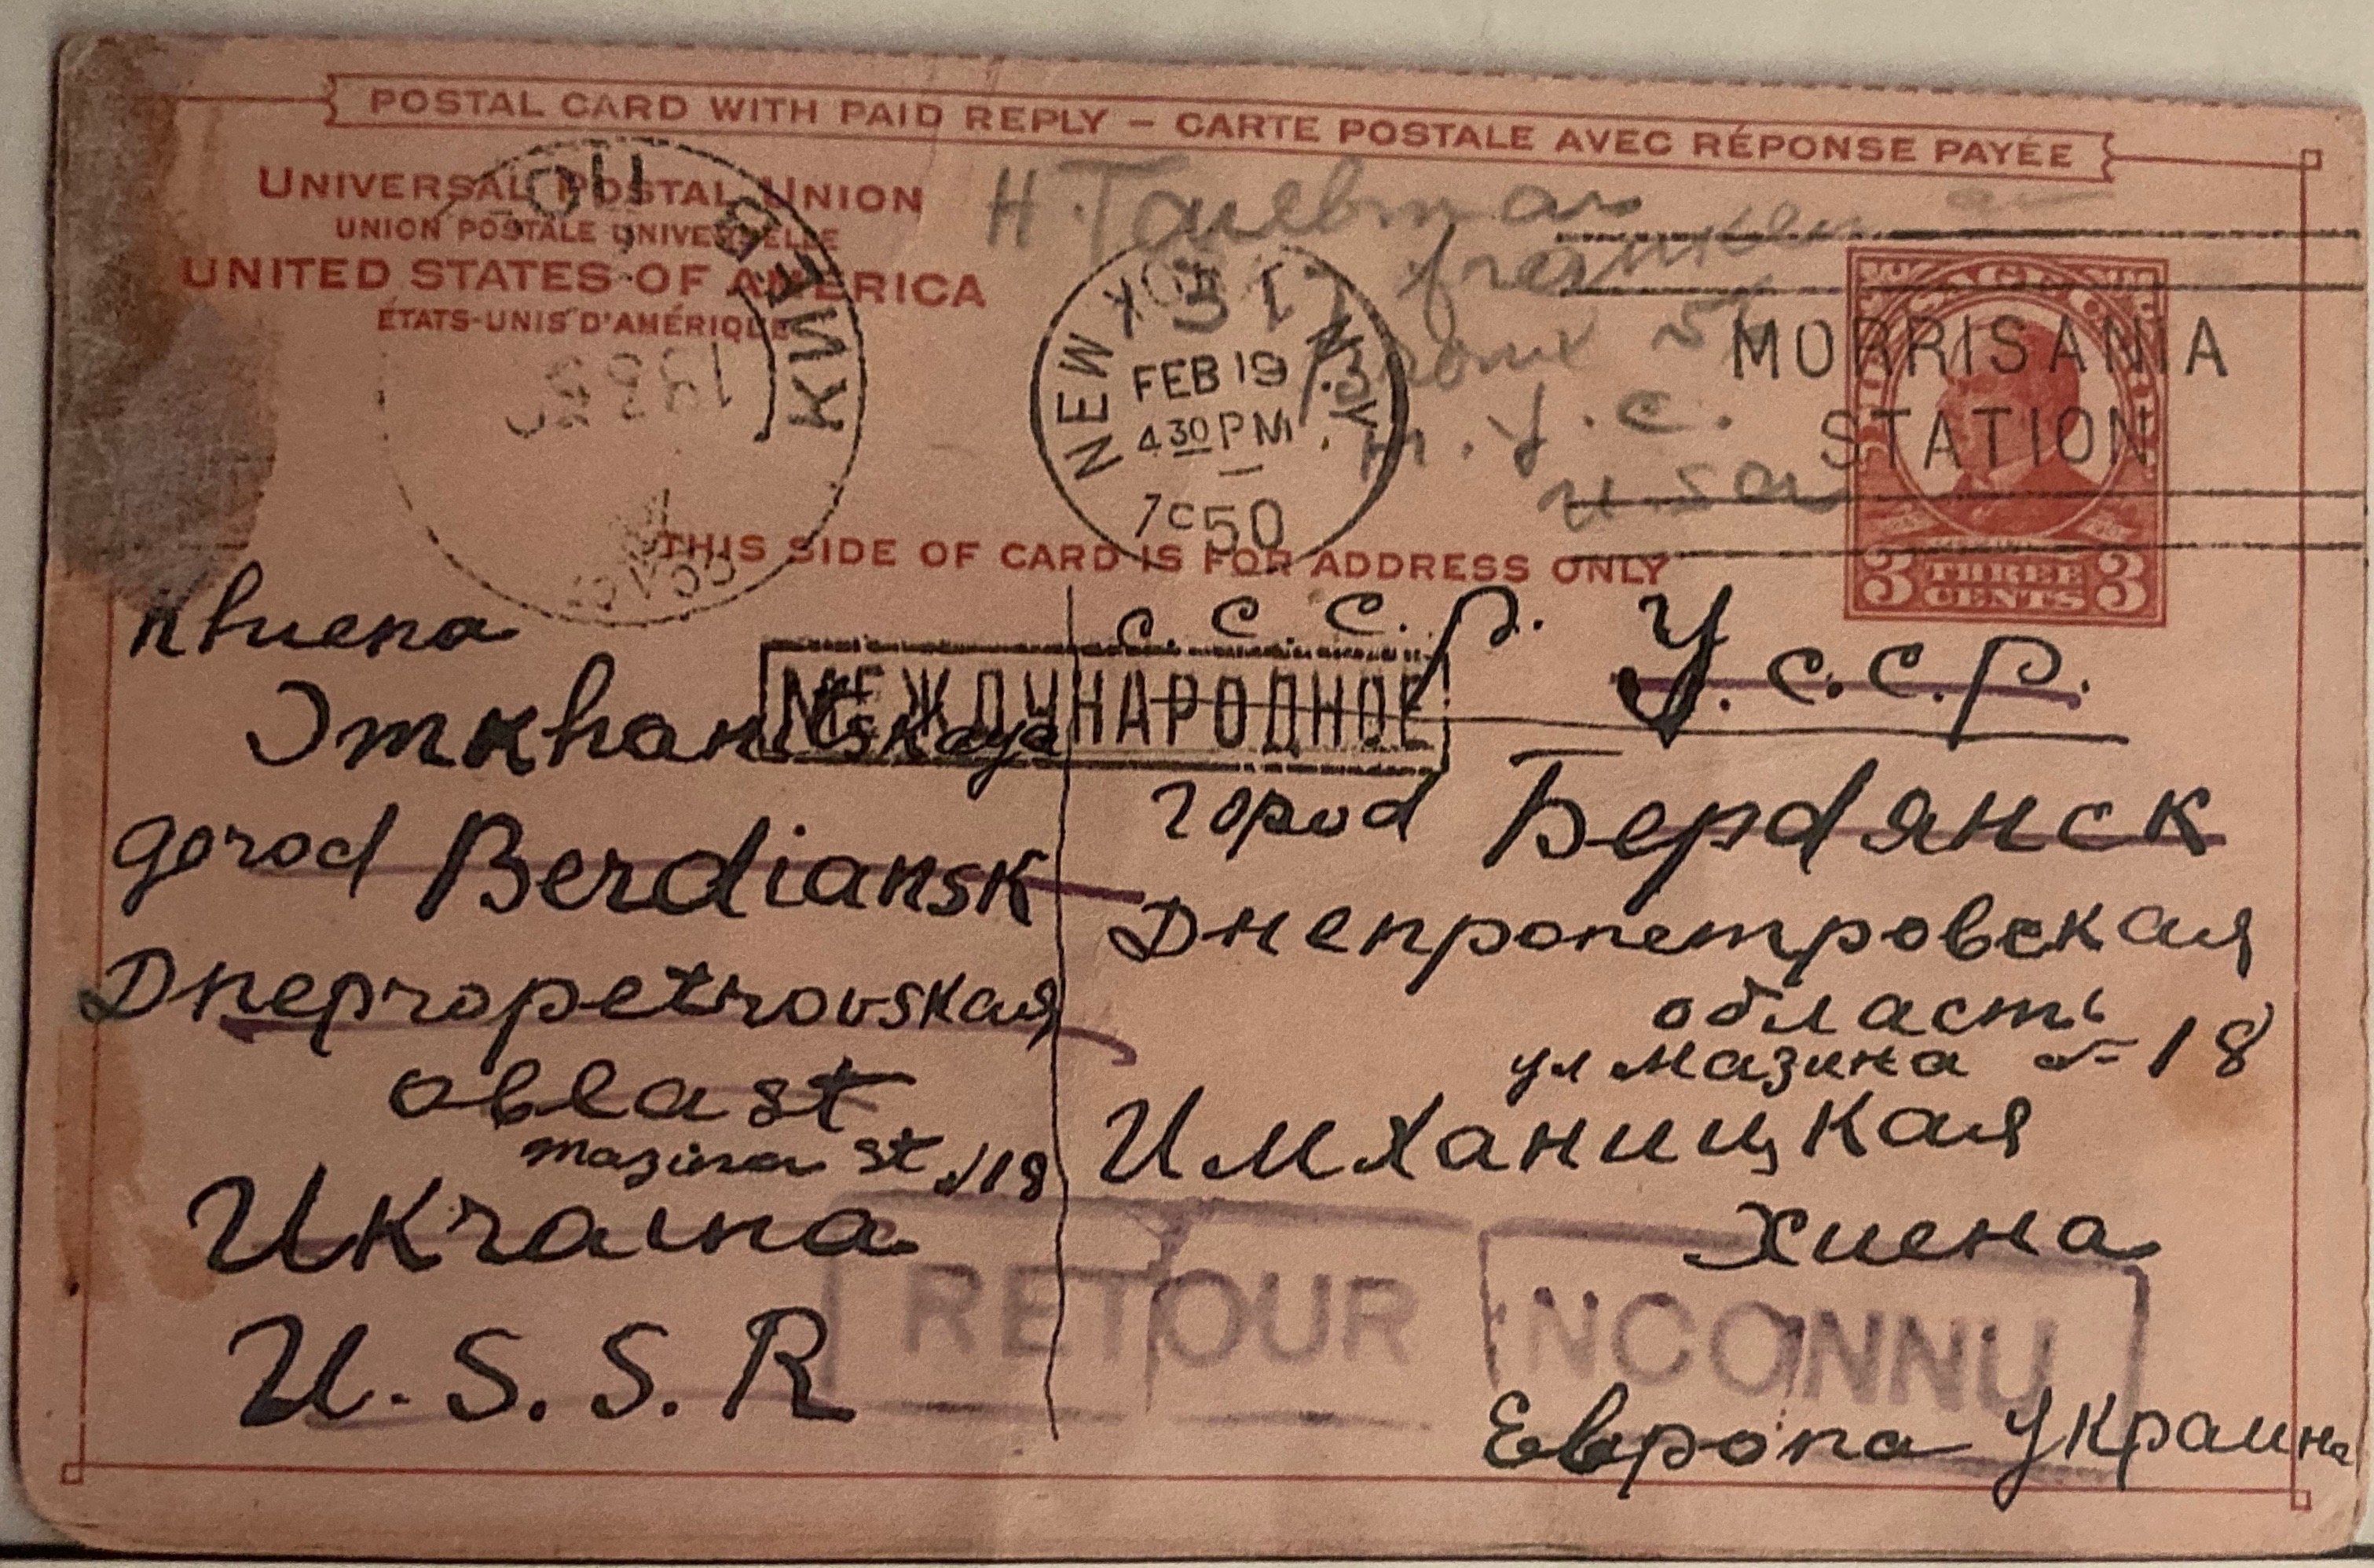 POSTAL CARD WITH PAID REPLY – CARTE POSTALE AVEC RÉPONSE PAYÉE
UNIVERSAL POSTAL UNION
UNION POSTALE UNIVERSELLE
UNITED STATES OF AMERICA
ÉTATS-UNIS D'AMÉRIQUE
КИЕВ
Bronx 56
N.Y.C.
U.S.A
NEW YORK N.Y.
FEB 19
4 30 PM
50
MORRISANIA
STATION
3 THREE CENTS 3
THIS SIDE OF CARD IS FOR ADDRESS ONLY
МЕЖДУНАРОДНОЕ
Khuena
Imkhanitskaya
gorod Berdiansk
Dnepropetrovskaя
oblast
masina st №18
Ukraina
U.S.S.R
С.С.С.Р. У.С.С.Р.
город Бердянск
Днепропетровская
область
ул Мазина № 18
Имханицкая
Хиена
RETOUR
NCONNU
Европа Украина